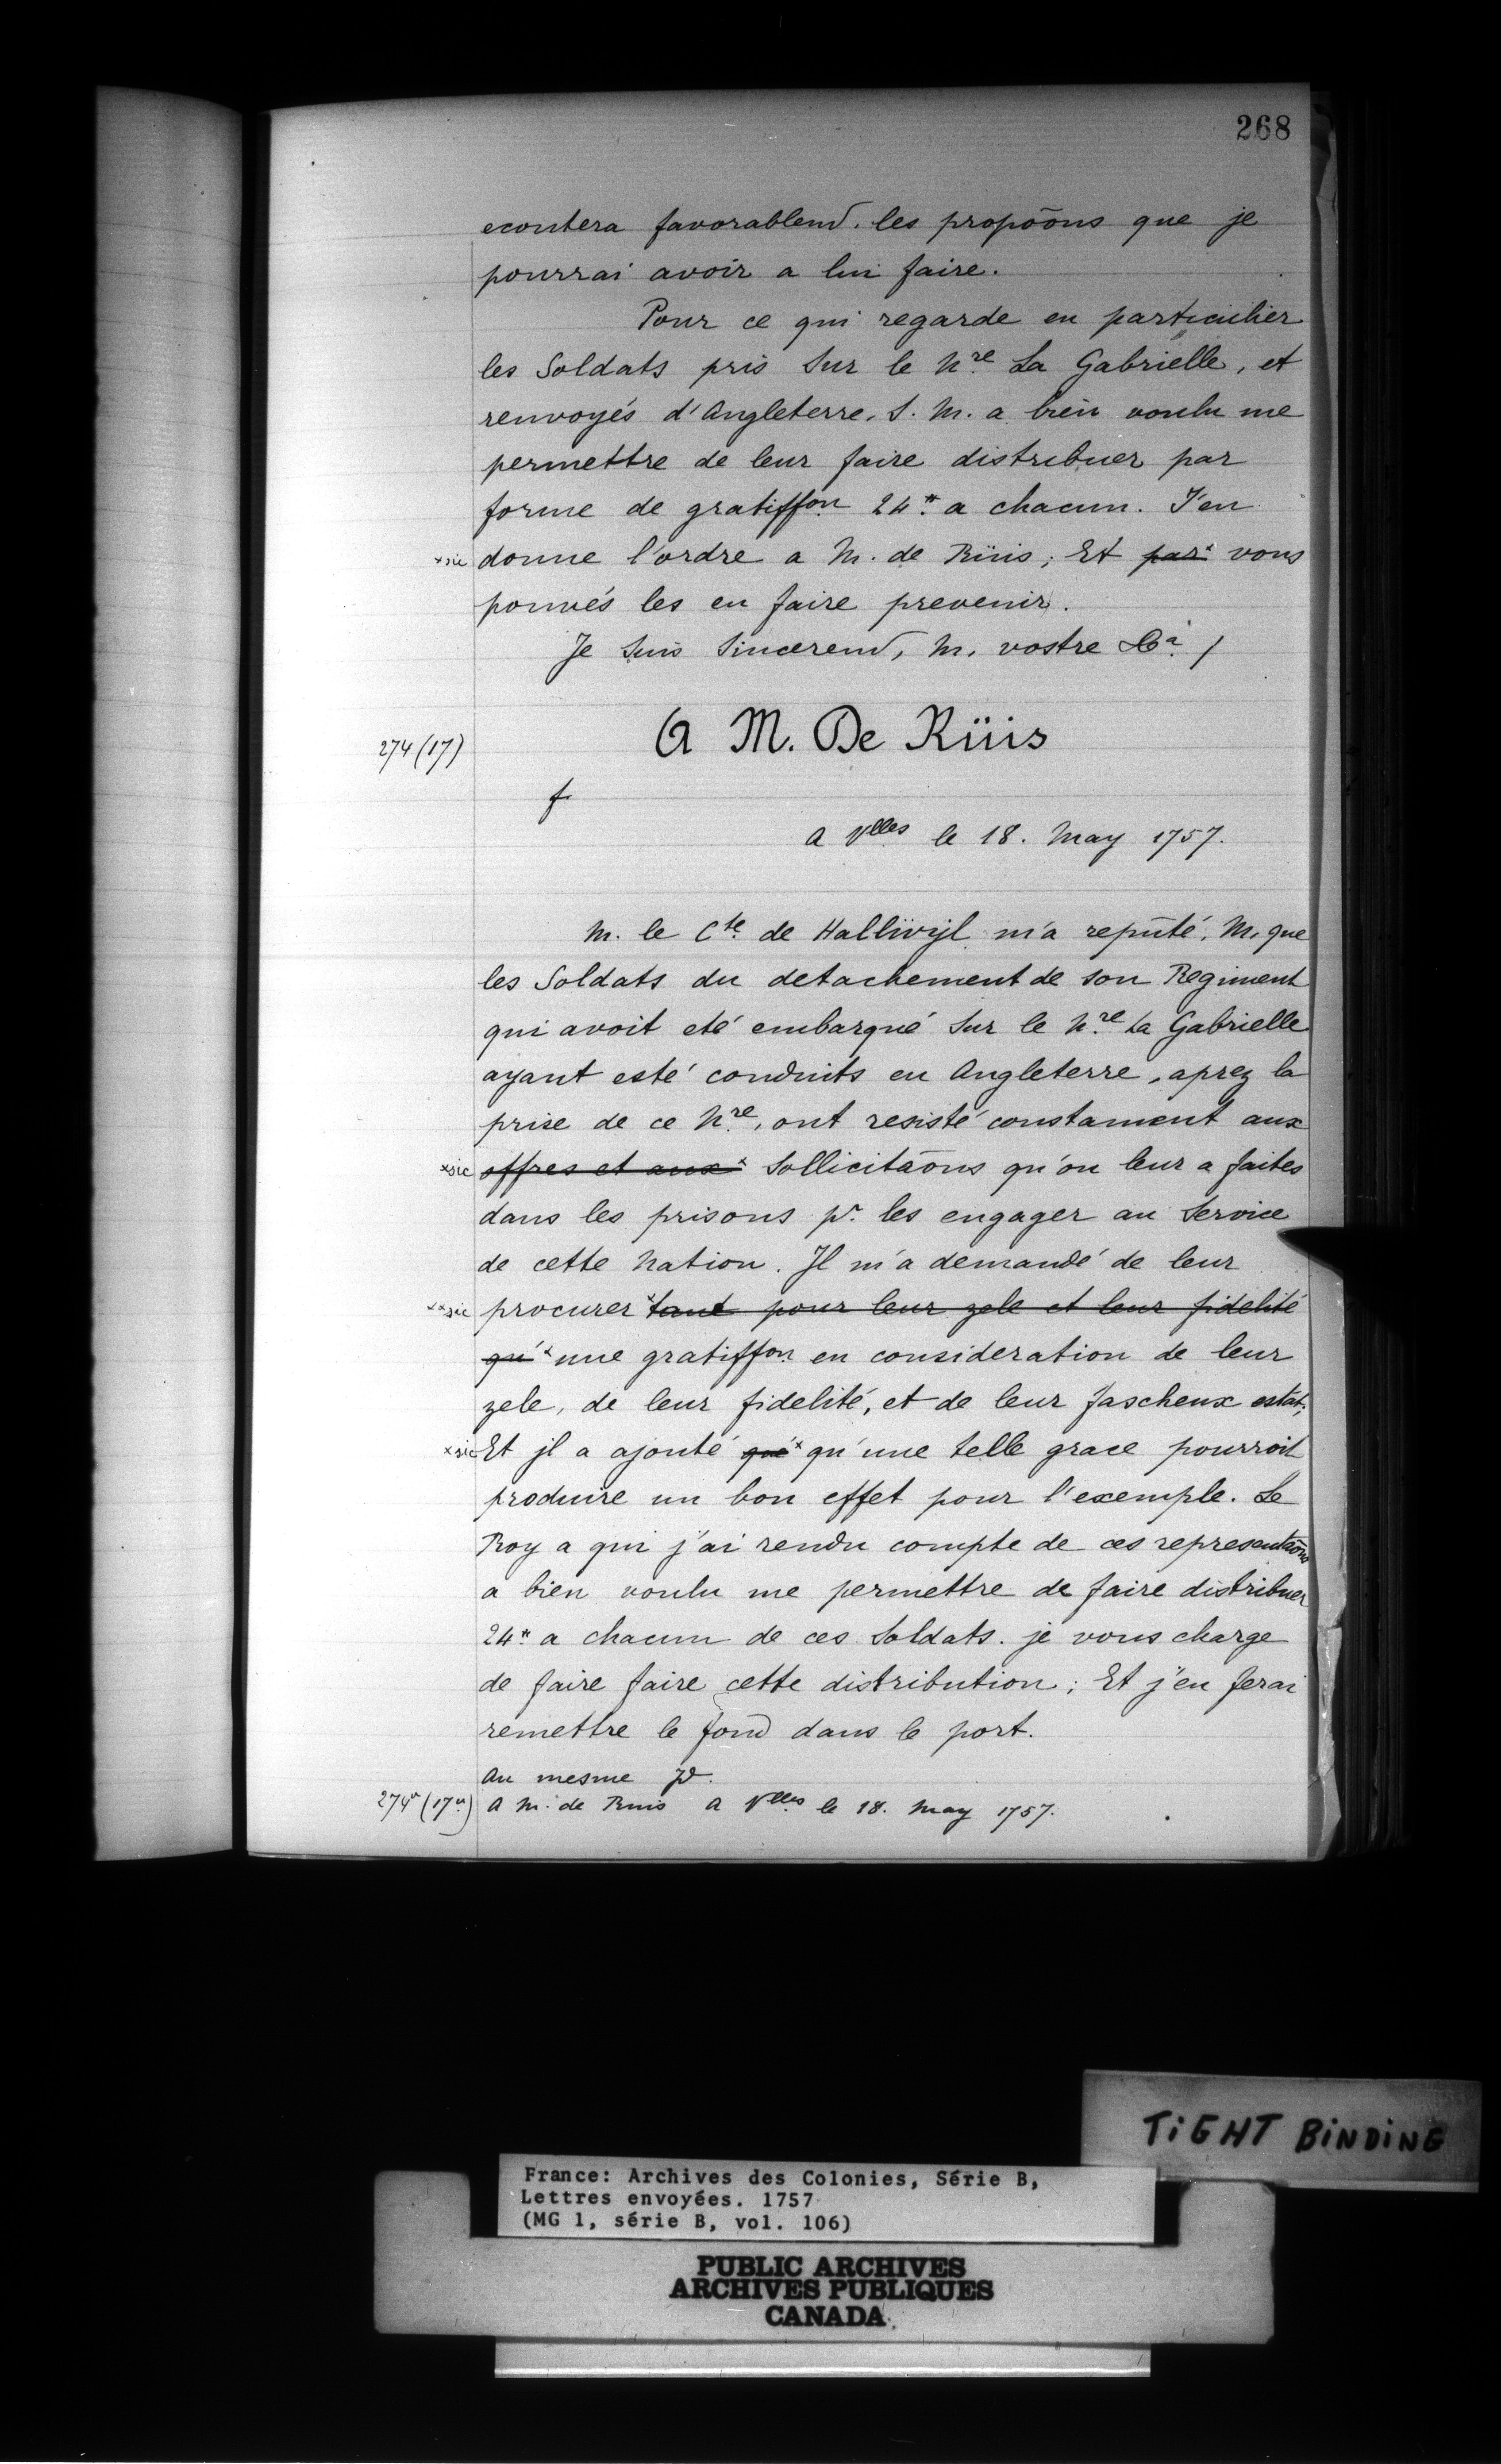 268
ecoutera favorablemt. les propoõns que je
pourrai avoir a lui faire.
Pour ce qui regarde en particulier
les Soldats pris sur le Nre. La Gabrielle, et
renvoyés d'Angleterre, S. M. a bien voulu me
permettre de leur faire distribuer par
forme de gratiffon 24# a chacun. J'en
xsic donne l'ordre a M. de Rüis; Et ~~par~~x vous
pouvés les en faire prevenir.
Je suis sinceremt, M. vostre &a /
274 (17) A M. De Rüis
f
a Vlles le 18. May 1757.
M. le Cte. de Hallwÿl m'a reputé, M. que
les Soldats du detachement de son Regiment
qui avoit eté embarqué sur le Nre. La Gabrielle
ayant esté conduits en Angleterre, aprez la
prise de ce Nre, ont resisté constament aux
xsic ~~offres et aux~~x Sollicitaõns qu'on leur a faites
dans les prisons pr. les engager au Service
de cette Nation. Il m'a demandé de leur
xxsic procurer x~~tant pour leur zele et leur fidelité~~
~~qu'~~x une gratiffon en consideration de leur
zele, de leur fidelité, et de leur fascheux estat;
xsic Et jl a ajouté ~~que~~x qu'une telle grace pourroit
produire un bon effet pour l'exemple. Le
Roy a qui j'ai rendu compte de ces representaõns
a bien voulu me permettre de faire distribuer
24# a chacun de ces Soldats. je vous charge
de faire faire cette distribution; Et j'en ferai
remettre le fond dans le port.
Au mesme
274v (17v) A M. de Ruis A Vlles le 18. May 1757.
TIGHT BINDING
France: Archives des Colonies, Série B,
Lettres envoyées. 1757
(MG 1, série B, vol. 106)
PUBLIC ARCHIVES
ARCHIVES PUBLIQUES
CANADA